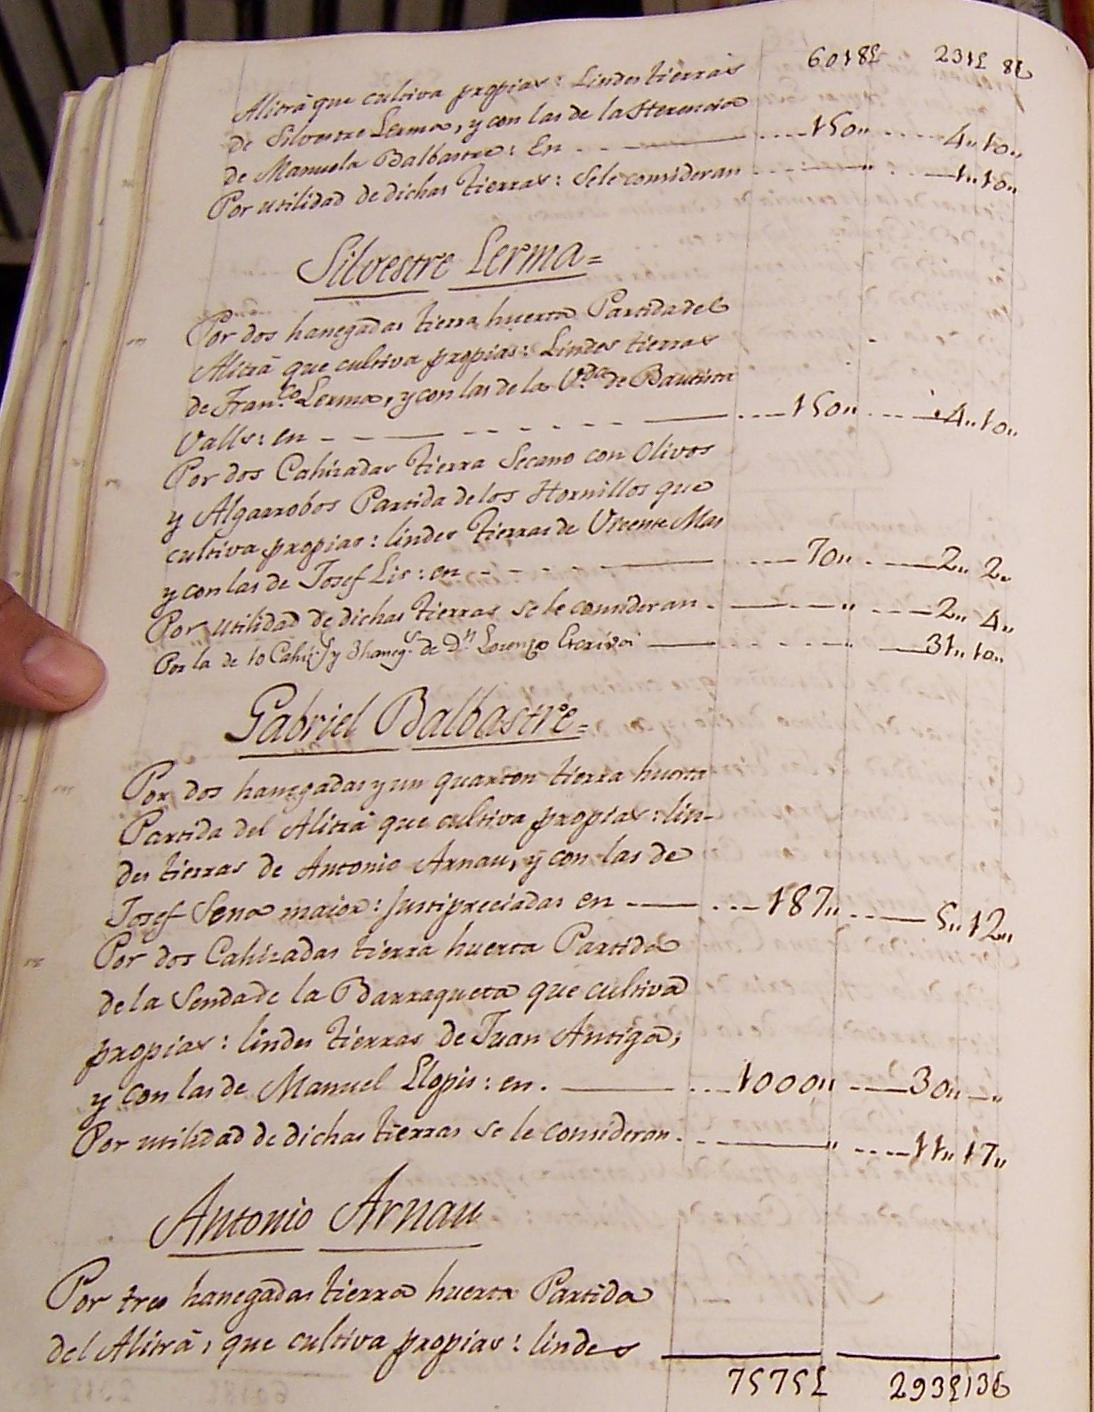 6018£ 231£ 8
Alitrâ que cultiva propias: Lindes tierras
de Silvestre Lerma, y con las de la Herencia
de Manuela Balbastre: En 150,, 4,, 10,,
Por utilidad de dichas tierras: Sele consideran ,, 1,, 10,,
Silvestre Lerma=
Por dos hanegadas tierra huerta Partida del
Alitrâ que cultiva propias: Lindes tierras
de Fran.co Lerma, y con las de la V.da de Bautista
Valls: en 150,, 4,, 10,,
Por dos Cahizadas tierra Secano con Olivos
y Algarrobos Partida de los Hornillos que
cultiva propias: lindes tierras de Vicente Mas
y con las de Josef Lis: en 70,, 2,, 2,,
Por utilidad de dichas tierras se le consideran. ,, 2,, 4,,
Por la de 10 Cahiz.s y 3 haneg.s de D.n Lorenzo Escrivá ,, 31,, 10,,
Gabriel Balbastre=
Por dos hanegadas y un quarton tierra huerta
Partida del Alitrâ que cultiva propias: lin-
des tierras de Antonio Arnau, y con las de
Josef Sena maior: Justipreciadas en 187,, 5,, 12,,
Por dos Cahizadas tierra huerta Partida
de la Senda de la Barraqueta que cultiva
propias: lindes tierras de Juan Antiga,
y con las de Manuel Llopis: en. 1000,, 30,, ,,
Por utilidad de dichas tierras se le consideran. ,, 11,, 17,,
Antonio Arnau
Por tres hanegadas tierra huerta Partida
del Alitrâ, que cultiva propias: lindes
7575£ 293£13